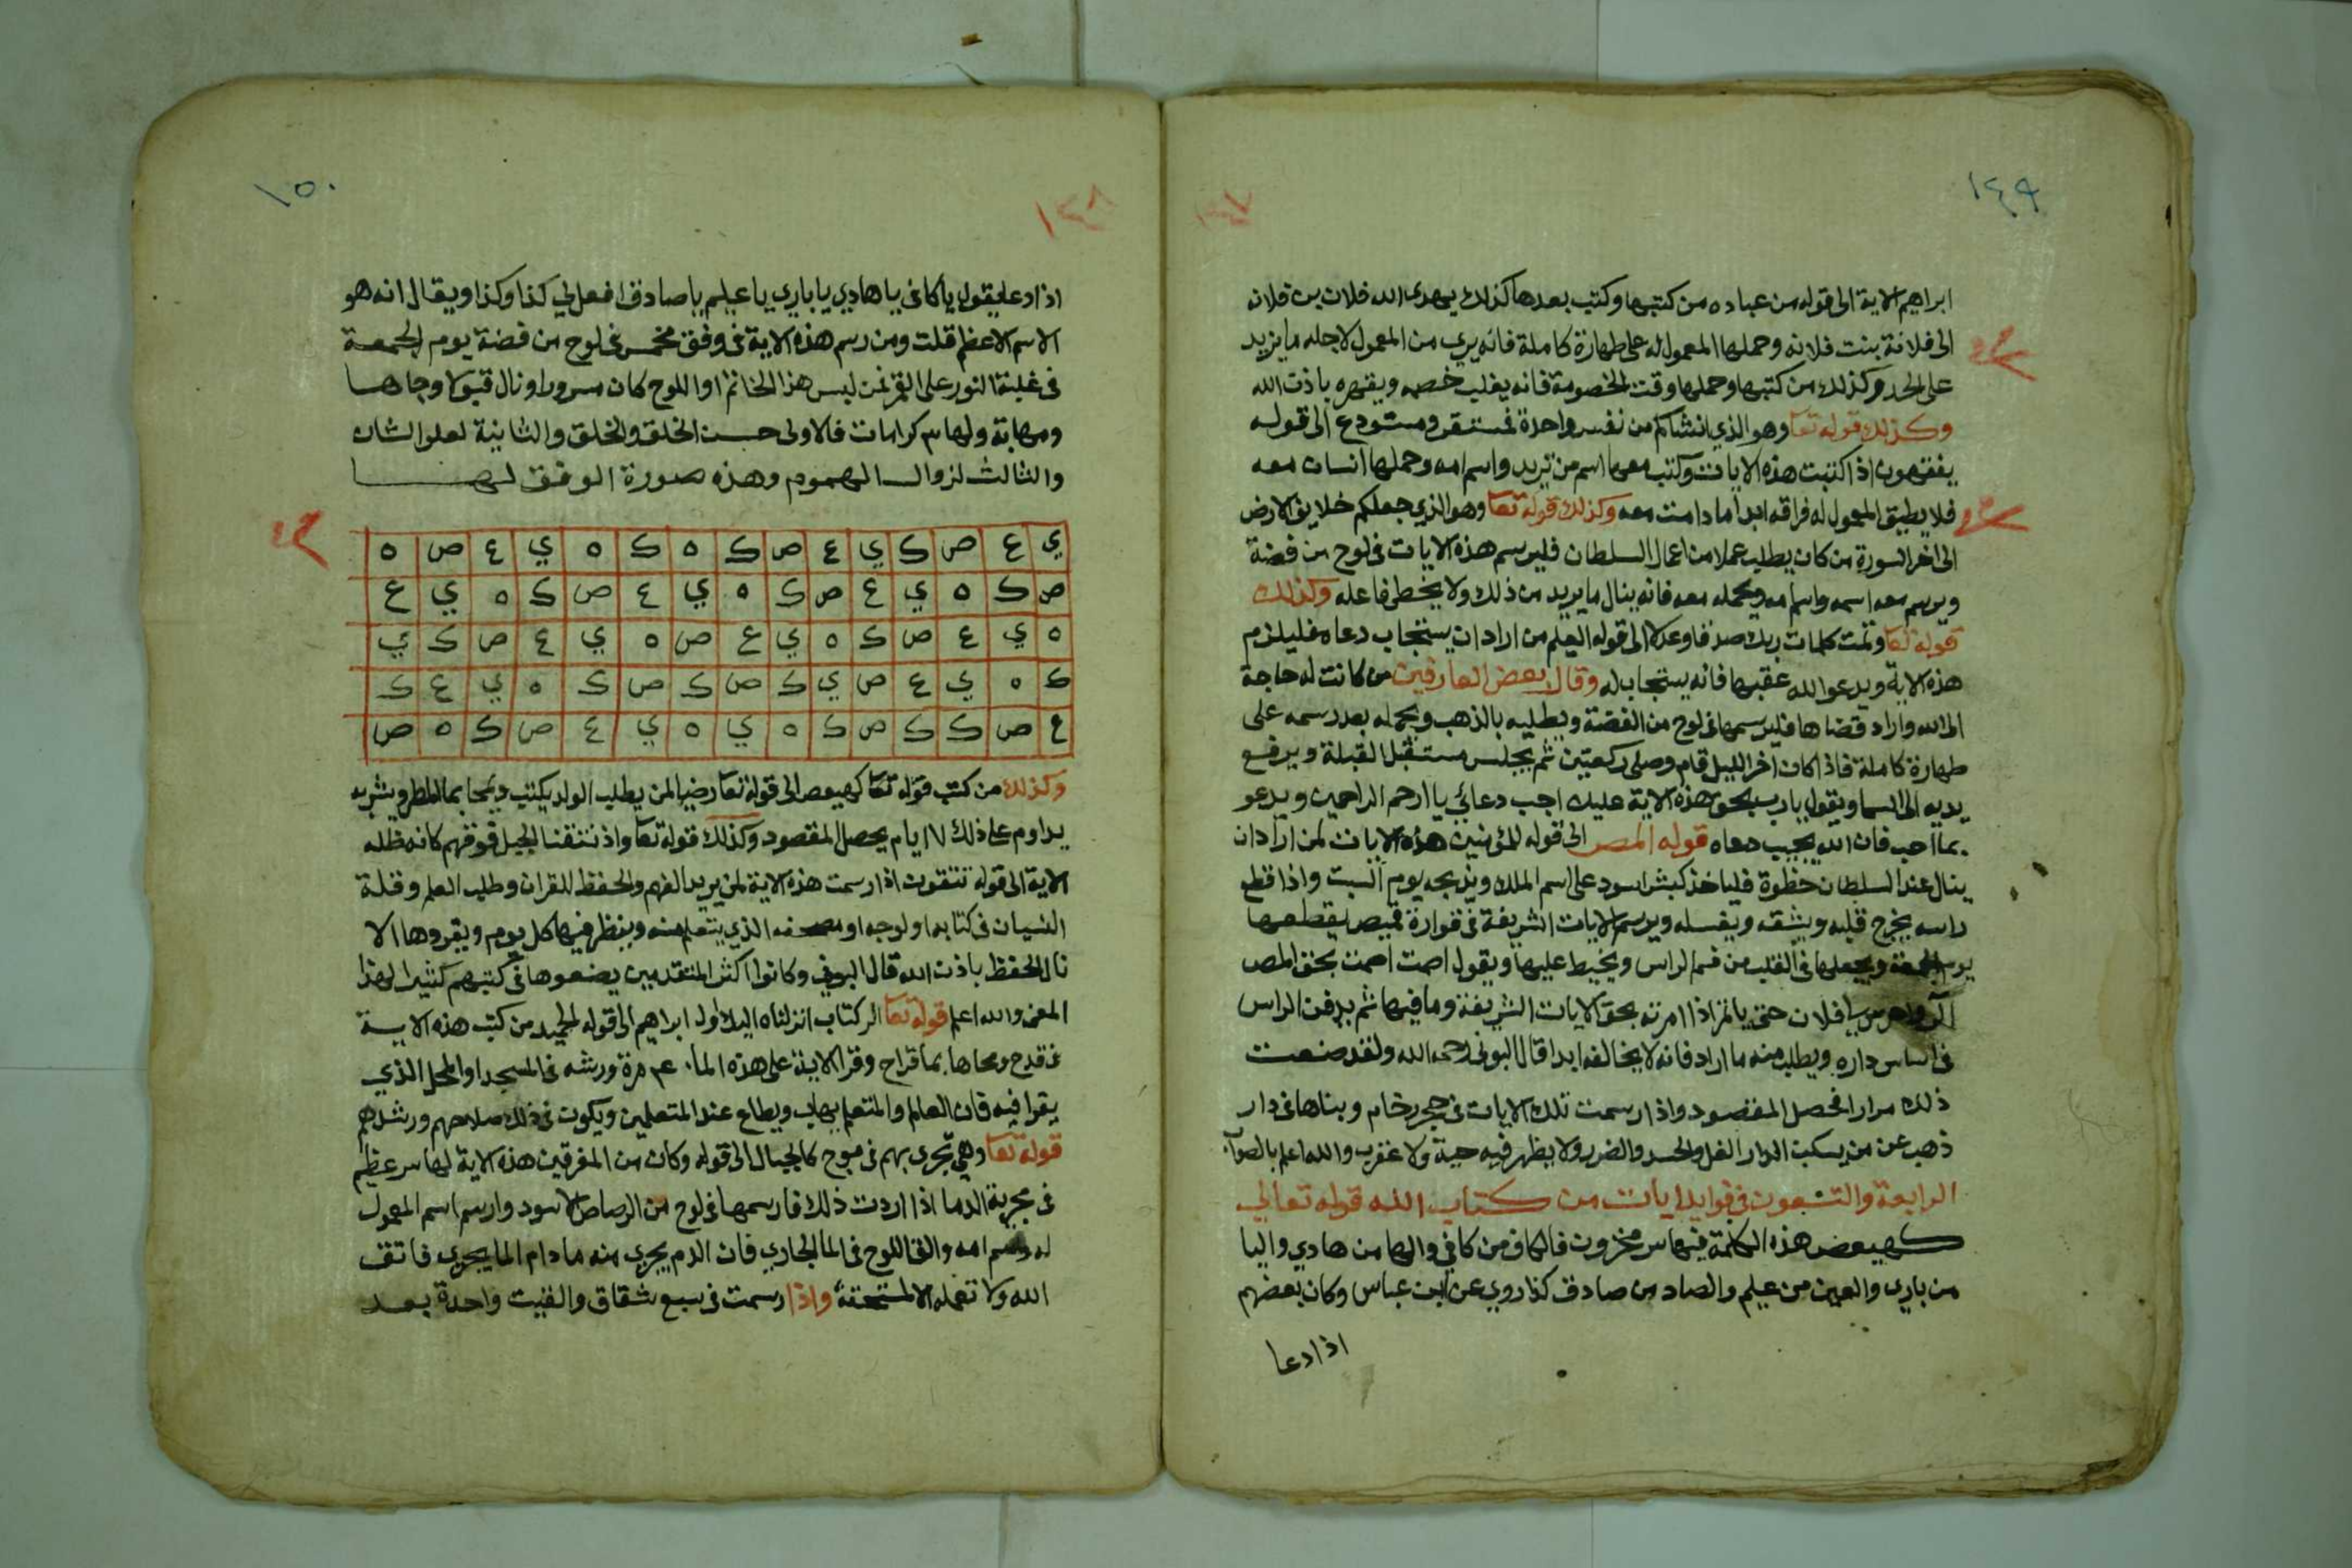 ١٤٩
ابراهيم الاية الى قوله من عباده من كتبها وكتب بعدها كذلك يهدي الله فلان بن فلانه
الى فلانة بنت فلانه وحملها المعمول له على طهارة كاملة فانه يري من المعمول لاجله ما يزيد
على الحد وكذلك من كتبها وحملها وقت الخصومة فانه يغلب خصمه ويقهره باذن الله
وكذلك قوله تعا وهو الذي انشاكم من نفس واحدة فمستقر ومستودع الى قوله
يفقهون اذا كتبت هذه الايات وكتب معها اسم من تريد واسم امه وحملها انسان معه
فلا يطيق المعمول له فراقه ابدا ما دامت معه وكذلك قوله تعا وهو الذي جعلكم خلايف الارض
الى اخر السورة من كان يطلب عملا من اعمال السلطان فليرسم هذه الايات في لوح من فضة
ويرسم معه اسمه واسم امه ويحمله معه فانه ينال ما يريد من ذلك ولا يخطى فاعله وكذلك
قوله تعا وتمت كلمات ربك صدقا وعدلا الى قوله العليم من اراد ان يستجاب دعاه فليلزم
هذه الاية ويدعو الله عقبها فانه يستجاب له وقال بعض العارفين من كانت له حاجة
الى الله واراد قضاها فليرسمها في لوح من الفضة ويطليه بالذهب ويحمله بعد رسمه على
طهارة كاملة فاذا كان اخر الليل قام وصلى ركعتين ثم يجلس مستقبل القبلة ويرفع
يديه الى السما ويقول يارب بحق هذه الاية عليك اجب دعائي يا ارحم الراحمين ويدعو
بما احب فان الله يجيب دعاه قوله المص الى قوله للمومنين هذه الايات لمن اراد ان
ينال عند السلطان حظوة فلياخذ كبش اسود على اسم الملك ويذبحه يوم السبت واذا قطع
راسه يخرج قلبه ويشقه ويغسله ويرسم الايات الشريفة في قوارة قميص يقطعها
يوم الجمعة ويجعلها في القلب من فم الراس ويخيط عليها ويقول اصمت اصمت بحق المص
يا فلان حتى يا تمر اذا امرته بحق الايات الشريفة وما فيها ثم يدفن الراس
في اساس داره ويطلب منه ما اراد فانه لا يخالفه ابدا قال البوني رحمه الله ولقد صنعت
ذلك مرارا فحصل المقصود واذا رسمت تلك الايات في حجر رخام وبناها في دار
ذهب عن من يسكن الدار الغل والحسد والضرر ولا يظهر فيه حية ولا عقرب والله اعلم بالصواب
الرابعة والتسعون في فوايد ايات من كتاب الله قوله تعالي
كهيعص هذه الكلمة فيها سر مخزون فالكاف من كافي والها من هادي واليا
من باري والعين من عليم والصاد من صادق كذا روي عن ابن عباس وكان بعضهم
اذا دعا
١٥٠
١٣٨
اذا دعا يقول يا كافي يا هادي يا باري يا عليم يا صادق افعل لي كذا وكذا ويقال انه هو
الاسم الاعظم قلت ومن رسم هذه الاية في وفق مخمس في لوح من فضة يوم الجمعة
في غلبة النور على القمر فمن لبس هذا الخاتم او اللوح كان مسرورا ونال قبولا وجاها
ومهابة ولها ٣ كرامات فالاولى حسن الخلق والخلق والثانية لعلو الشان
والثالث لزوال الهموم وهذه صورة الوفق لها
ي ع ص ك ي ع ص ك ه ك ه ي ع ص ه
ص ك ه ي ع ص ك ه ي ع ص ك ه ي ع
ه ي ع ص ك ه ي ع ص ه ي ع ص ك ي
ك ه ي ع ص ي ك ص ك ص ك ه ي ع ك
ع ص ك ك ص ك ه ي ه ي ع ص ك ه ص
وكذلك من كتب قوله تعا كهيعص الى قوله تعا رضيا لمن يطلب الولد يكتب ويمحا بما المطر ويشربه
يداوم على ذلك ١٧ ايام يحصل المقصود وكذلك قوله تعا واذ نتقنا الجبل فوقهم كانه ظله
الاية الى قوله تتقون اذا رسمت هذه الاية لمن يريد الفهم والحفظ للقران وطلب العلم وقلة
النسيان في كتابه او لوحه او مصحفه الذي يتعلم منه وينظر فيها كل يوم ويقروها الا
نال الحفظ باذن الله قال البوني وكانوا اكثر المتقدمين يضعوها في كتبهم كثيرا لهذا
المعنى والله اعلم قوله تعا الر كتاب انزلناه اليك اول ابراهيم الى قوله الحميد من كتب هذه الاية
في قدح ومحاها بما قراح وقرا الاية على هذه الما ٤٠ مرة ورشه في المسجد او المحل الذي
يقرا فيه فان العالم والمتعلم يهاب ويطاع عند المتعلمين ويكون في ذلك صلاحهم ورشدهم
قوله تعا وهي تجرى بهم في موج كالجبال الى قوله وكان من المغرقين هذه الاية لها سر عظيم
في مجرية الدما اذا اردت ذلك فارسمها في لوح من الرصاص الاسود وارسم اسم المعمول
له واسم امه والق اللوح في الما الجاري فان الدم يجري منه ما دام الما يجري فاتق
الله ولا تعمله الا لمستحقه واذا رسمت في سبع شقاق والقيت واحدة بعد